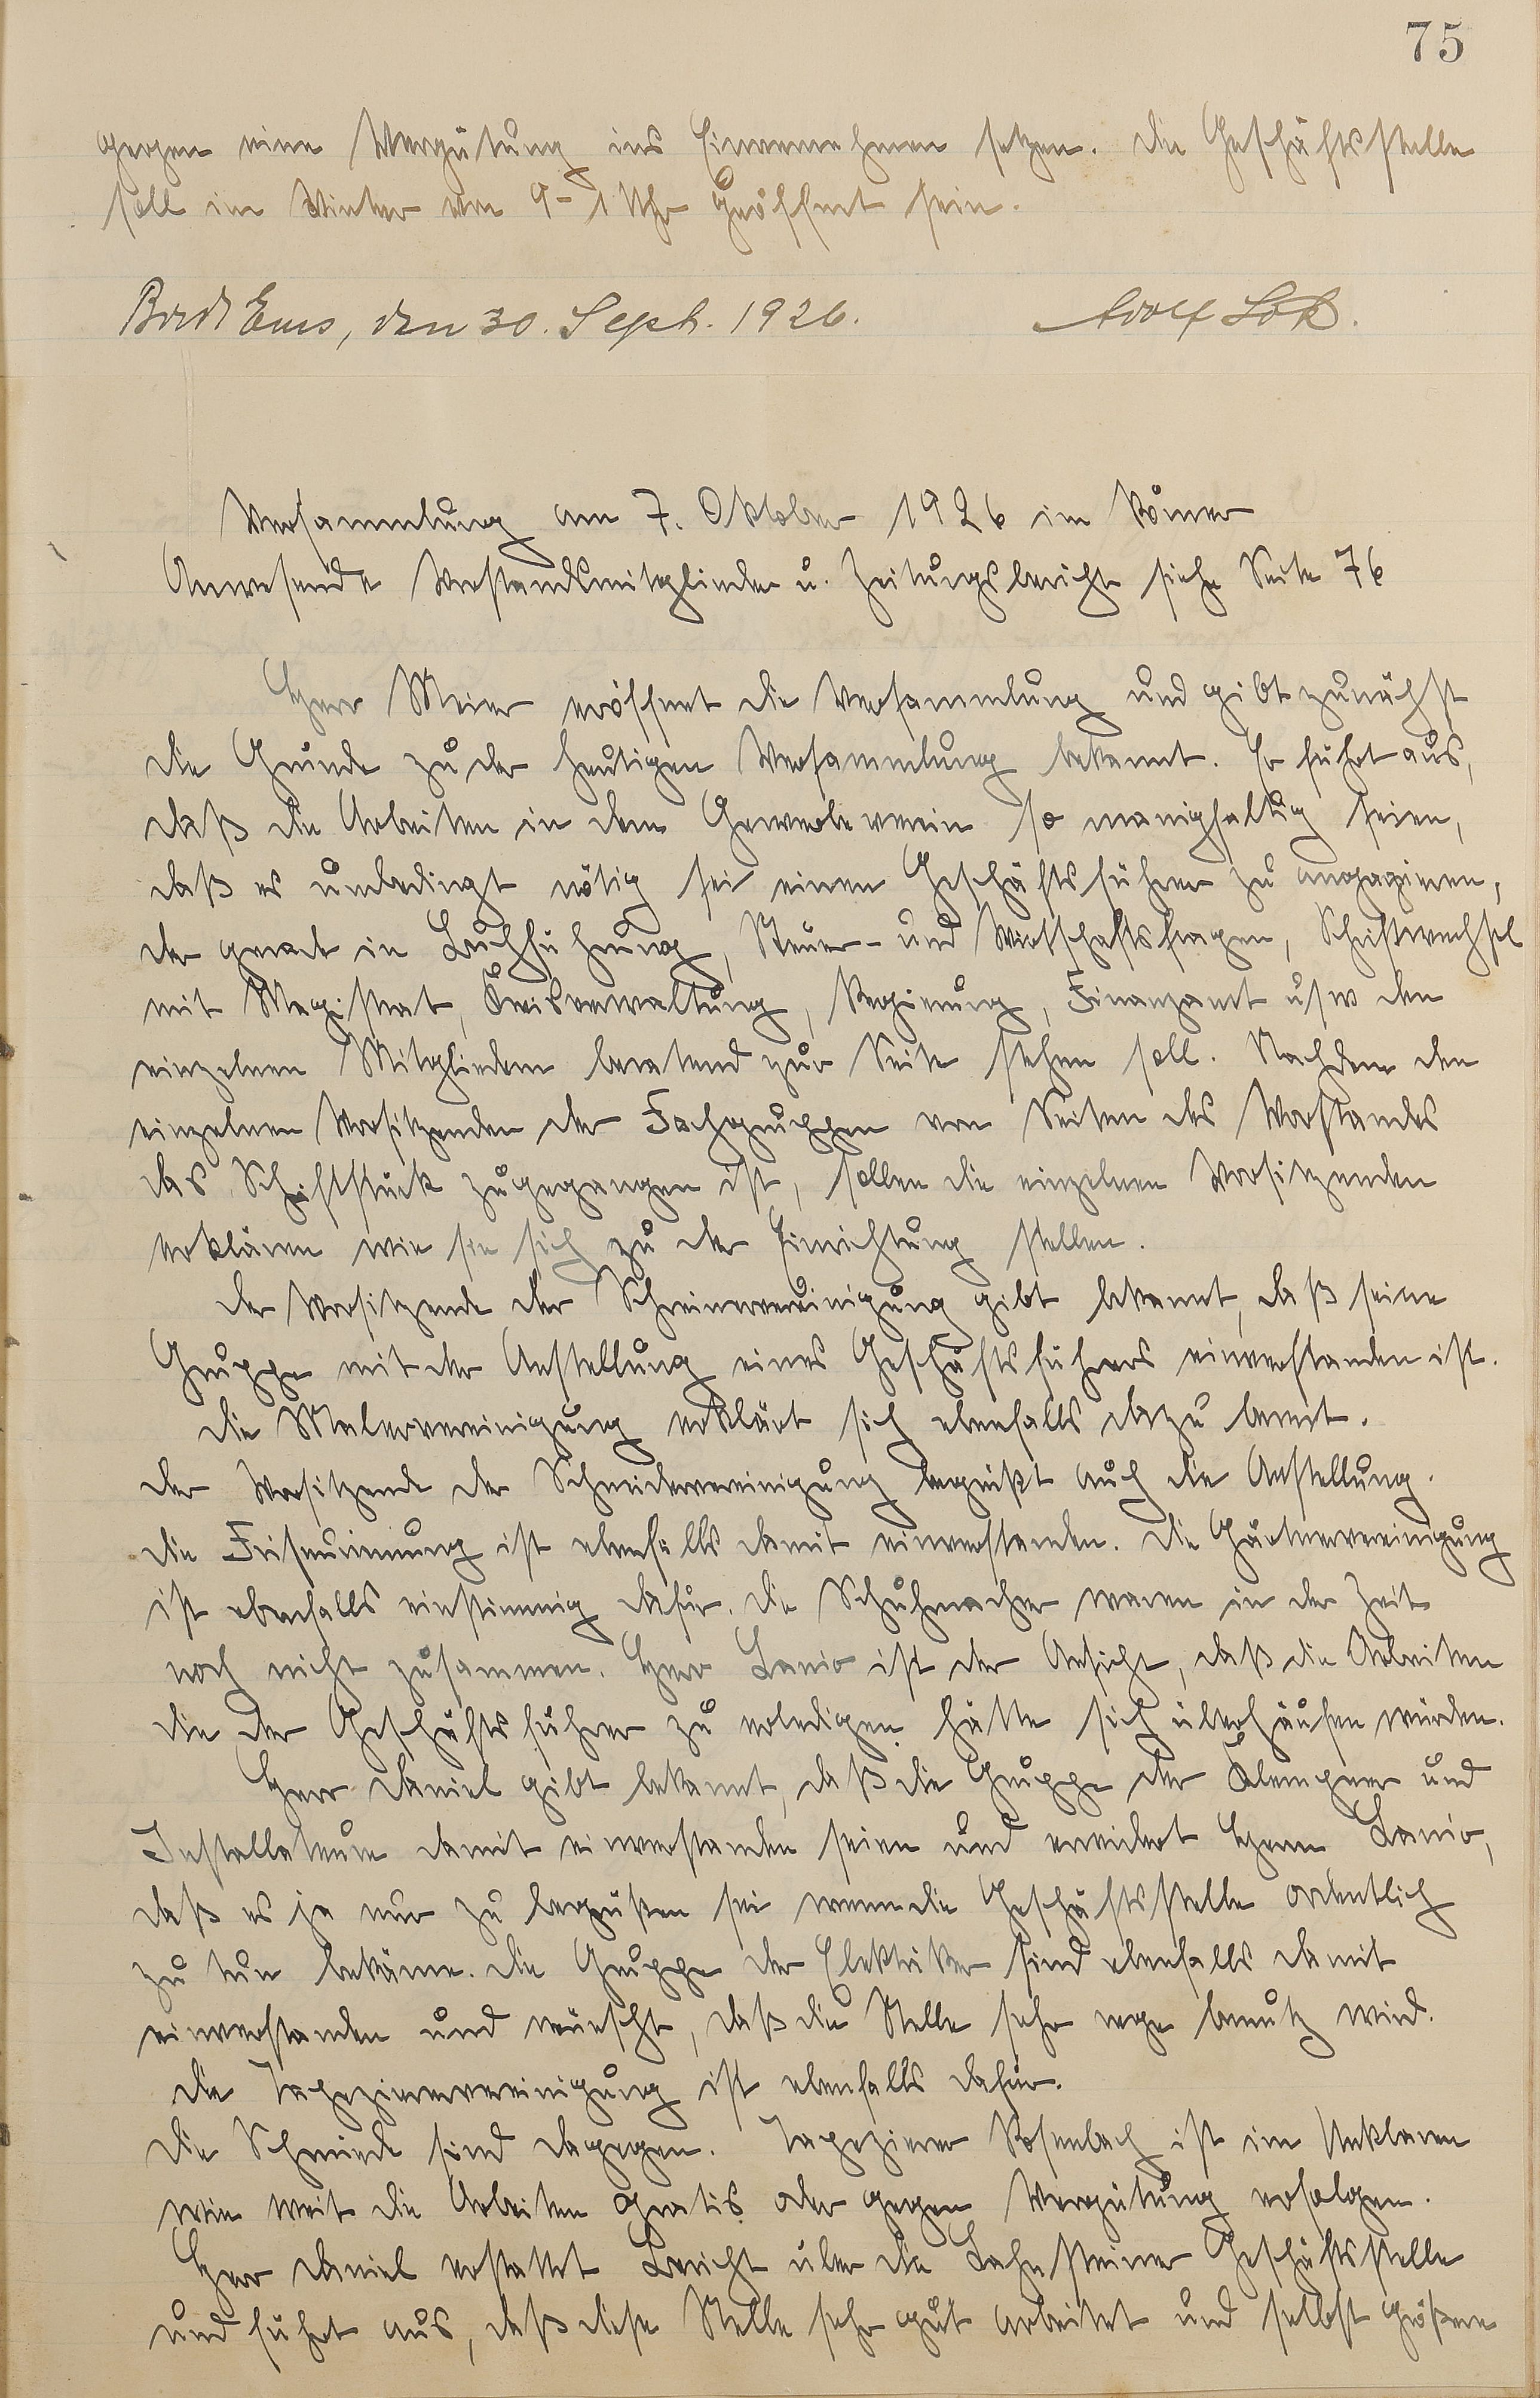 75
gegen eine Vergütung ins Einvernehmen setzen. Die Geschäftsstelle
soll im Winter von 9-1 Uhr geöffnet sein.
Bad Ems, den 30. Sept. 1926. Adolf
Versammlung am 7. Oktober 1926 im Römer
Anwesende Vorstandsmitglieder u. Zeitungsbericht siehe Seite 76
Herr Meier eröffnet die Versammlung und gibt zunächst
die Gründe zu der heutigen Versammlung bekannt. Er führt aus,
daß die Arbeiten in dem Gewerbeverein so manigfaltig seien,
daß es unbedingt nötig sei einen Geschäftsführer zu engagieren,
der gerade in Buchführung, Steuer- und Wirtschaftsfragen, Schriftwechsel
mit Magistrat, Kreisverwaltung, Regierung, Finanzamt usw den
einzelnen Mitgliedern beratend zur Seite stehen soll. Nachdem den
einzelnen Vorsitzenden der Fachgruppen von Seiten des Vorstandes
das Schriftstück zugegangen ist, sollen die einzelnen Vorsitzenden
erklären wie sie sich zu der Einrichtung stellen.
Der Vorsitzende der Schreinervereinigung gibt bekannt, daß seine
Gruppe mit der Anstellung eines Geschäftsführers einverstanden ist.
Die Malervereinigung erklärt sich ebenfalls dazu bereit.
Der Vorsitzende der Schneidervereinigung begrüßt auch die Anstellung.
Die Friseurinnung ist ebenfalls damit einverstanden. Die Gärtnervereinigung
ist ebenfalls einstimmig dafür. Die Schuhmacher waren in der Zeit
noch nicht zusammen. Herr Lanio ist der Ansicht, daß die Arbeiten
die der Geschäftsführer zu erledigen hätte sich überhäufen würden.
Herr Daniel gibt bekannt, daß die Gruppe der Klempner und
Installateure damit einverstanden seien und erwidert Herrn Lanio,
daß es ja nur zu begrüßen sei wenn die Geschäftsstelle ordentlich
zu tun bekäme. Die Gruppe der Elektriker sind ebenfalls damit
einverstanden und wünscht, daß die Stelle sehr rege benutz wird.
Die Tapeziervereinigung ist ebenfalls dafür.
Die Schmiede sind dagegen. Tapezierer Rosenbach ist im Unklaren
wie weit die Arbeiten gratis oder gegen Vergütung erfolgen.
Herr Daniel erstattet Bericht über die Lahnsteiner Geschäftsstelle
und führt aus, daß diese Stelle sehr gut arbeitet und selbst größere